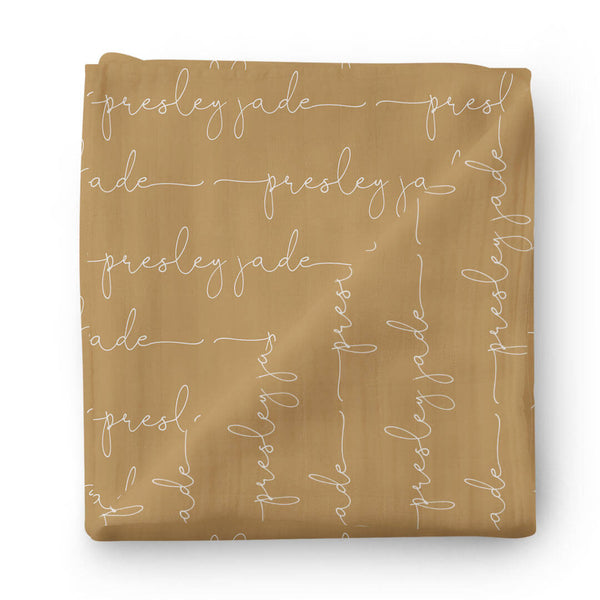 presley jade presl
jade presley ja
presley jade
jade
presl
presley ja
presley jade
presley jade
presley jade
jade
jade
jade